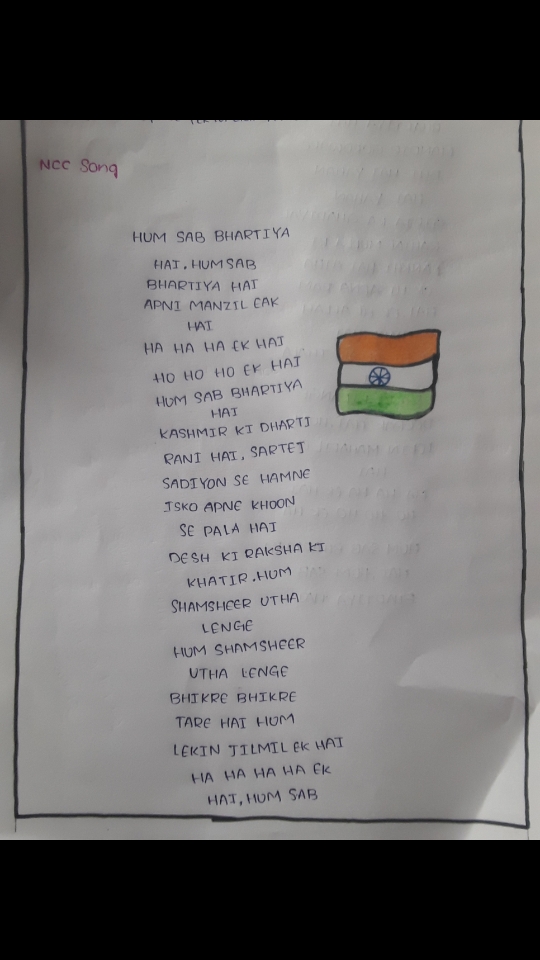 NCC Song
HUM SAB BHARTIYA
HAI, HUMSAB
BHARTIYA HAI
APNI MANZIL EAK
HAI
HA HA HA EK HAI
HO HO HO EK HAI
HUM SAB BHARTIYA
HAI
KASHMIR KI DHARTI
RANI HAI, SARTEJ
SADIYON SE HAMNE
ISKO APNE KHOON
SE PALA HAI
DESH KI RAKSHA KI
KHATIR.HUM
SHAMSHEER UTHA
LENGE
HUM SHAMSHEER
UTHA LENGE
BHIKRE BHIKRE
TARE HAI HUM
LEKIN JILMIL EK HAI
HA HA HA HA EK
HAI, HUM SAB